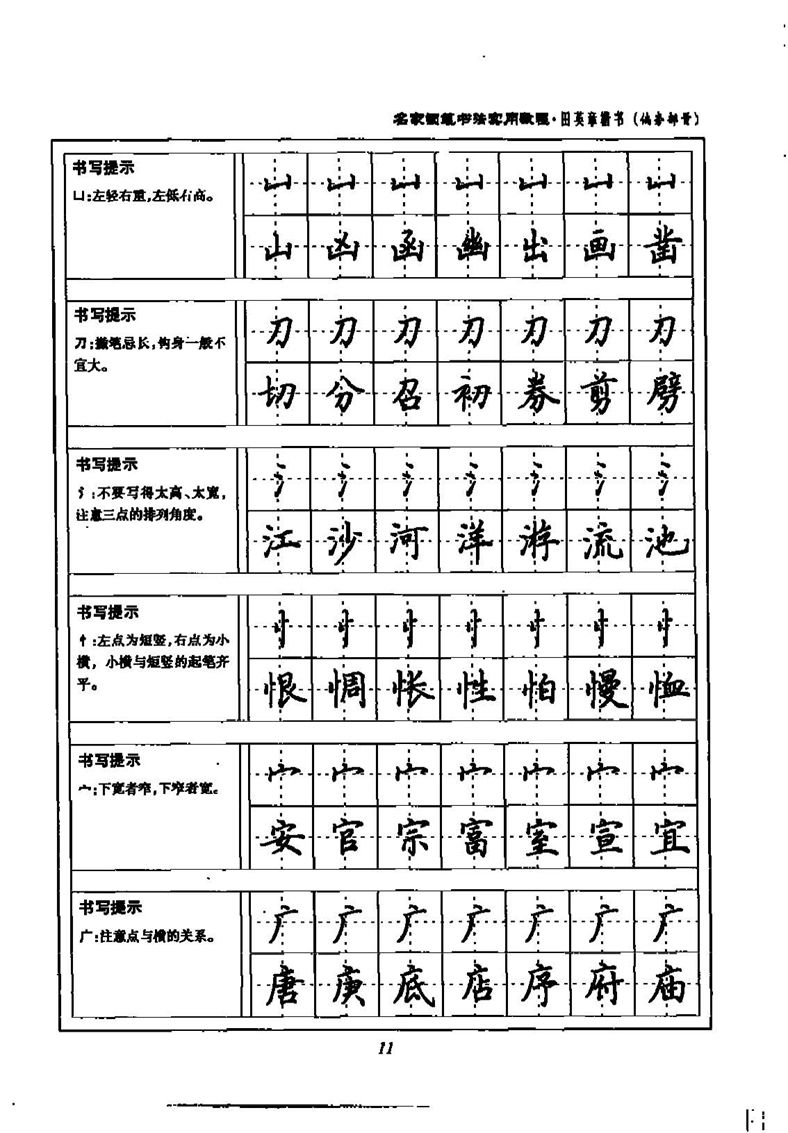 名家钢笔书法实用教程·田英章楷书（偏旁部首）
书写提示
凵:左轻右重,左低右高。
凵 凵 凵 凵 凵 凵 凵
山 凶 函 幽 出 画 凿
书写提示
刀:撇笔忌长,钩身一般不
宜大。
刀 刀 刀 刀 刀 刀 刀
切 分 召 初 券 剪 劈
书写提示
氵:不要写得太高、太宽,
注意三点的排列角度。
氵 氵 氵 氵 氵 氵 氵
江 沙 河 洋 游 流 池
书写提示
忄:左点为短竖,右点为小
横，小横与短竖的起笔齐
平。
忄 忄 忄 忄 忄 忄 忄
恨 惆 怅 性 怕 慢 恤
书写提示
宀:下宽者窄,下窄者宽。
宀 宀 宀 宀 宀 宀 宀
安 官 宗 富 室 宣 宜
书写提示
广:注意点与横的关系。
广 广 广 广 广 广 广
唐 庚 底 店 序 府 庙
11